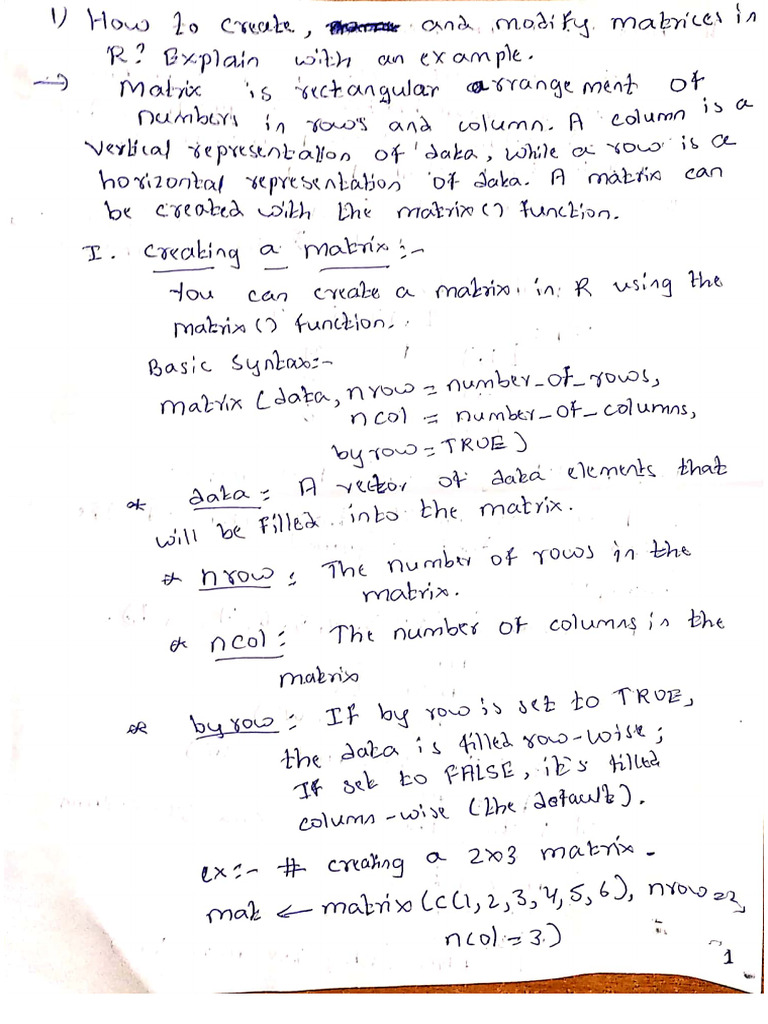 1) How to create, and modify matrices in
R? Explain with an example.
→ Matrix is rectangular arrangement of
numbers in rows and column. A column is a
vertical representation of data, while a row is a
horizontal representation of data. A matrix can
be created with the matrix() function.
I. Creating a matrix:-
You can create a matrix in R using the
matrix() function.
Basic Syntax:-
matrix (data, nrow = number_of_rows,
ncol = number_of_columns,
byrow = TRUE)
* data: A vector of data elements that
will be filled into the matrix.
* nrow: The number of rows in the
matrix.
* ncol: The number of columns in the
matrix
* byrow: If by row is set to TRUE,
the data is filled row-wise;
If set to FALSE, it's filled
column-wise (the default).
ex:- # creating a 2x3 matrix.
mat <- matrix(c(1,2,3,4,5,6), nrow=2,
ncol=3)
1